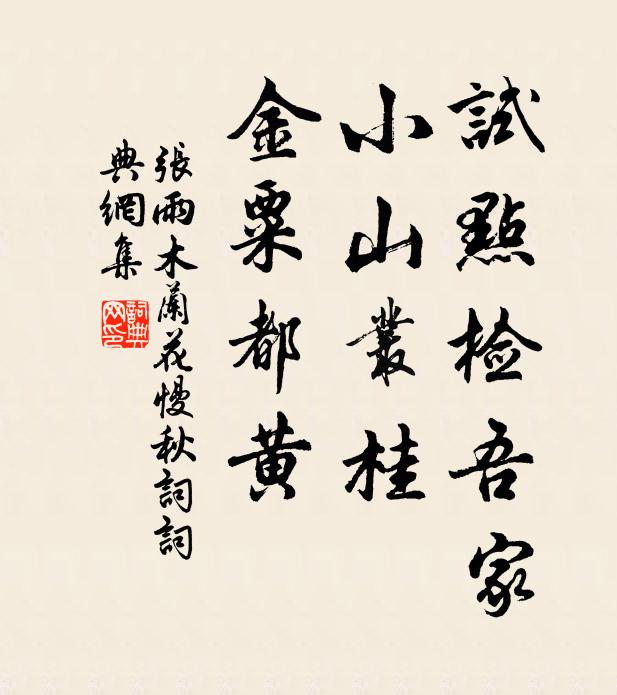 試點檢吾家
小山叢桂
金粟都黃
張雨木蘭花慢秋詞詞
典網集
詞典網印